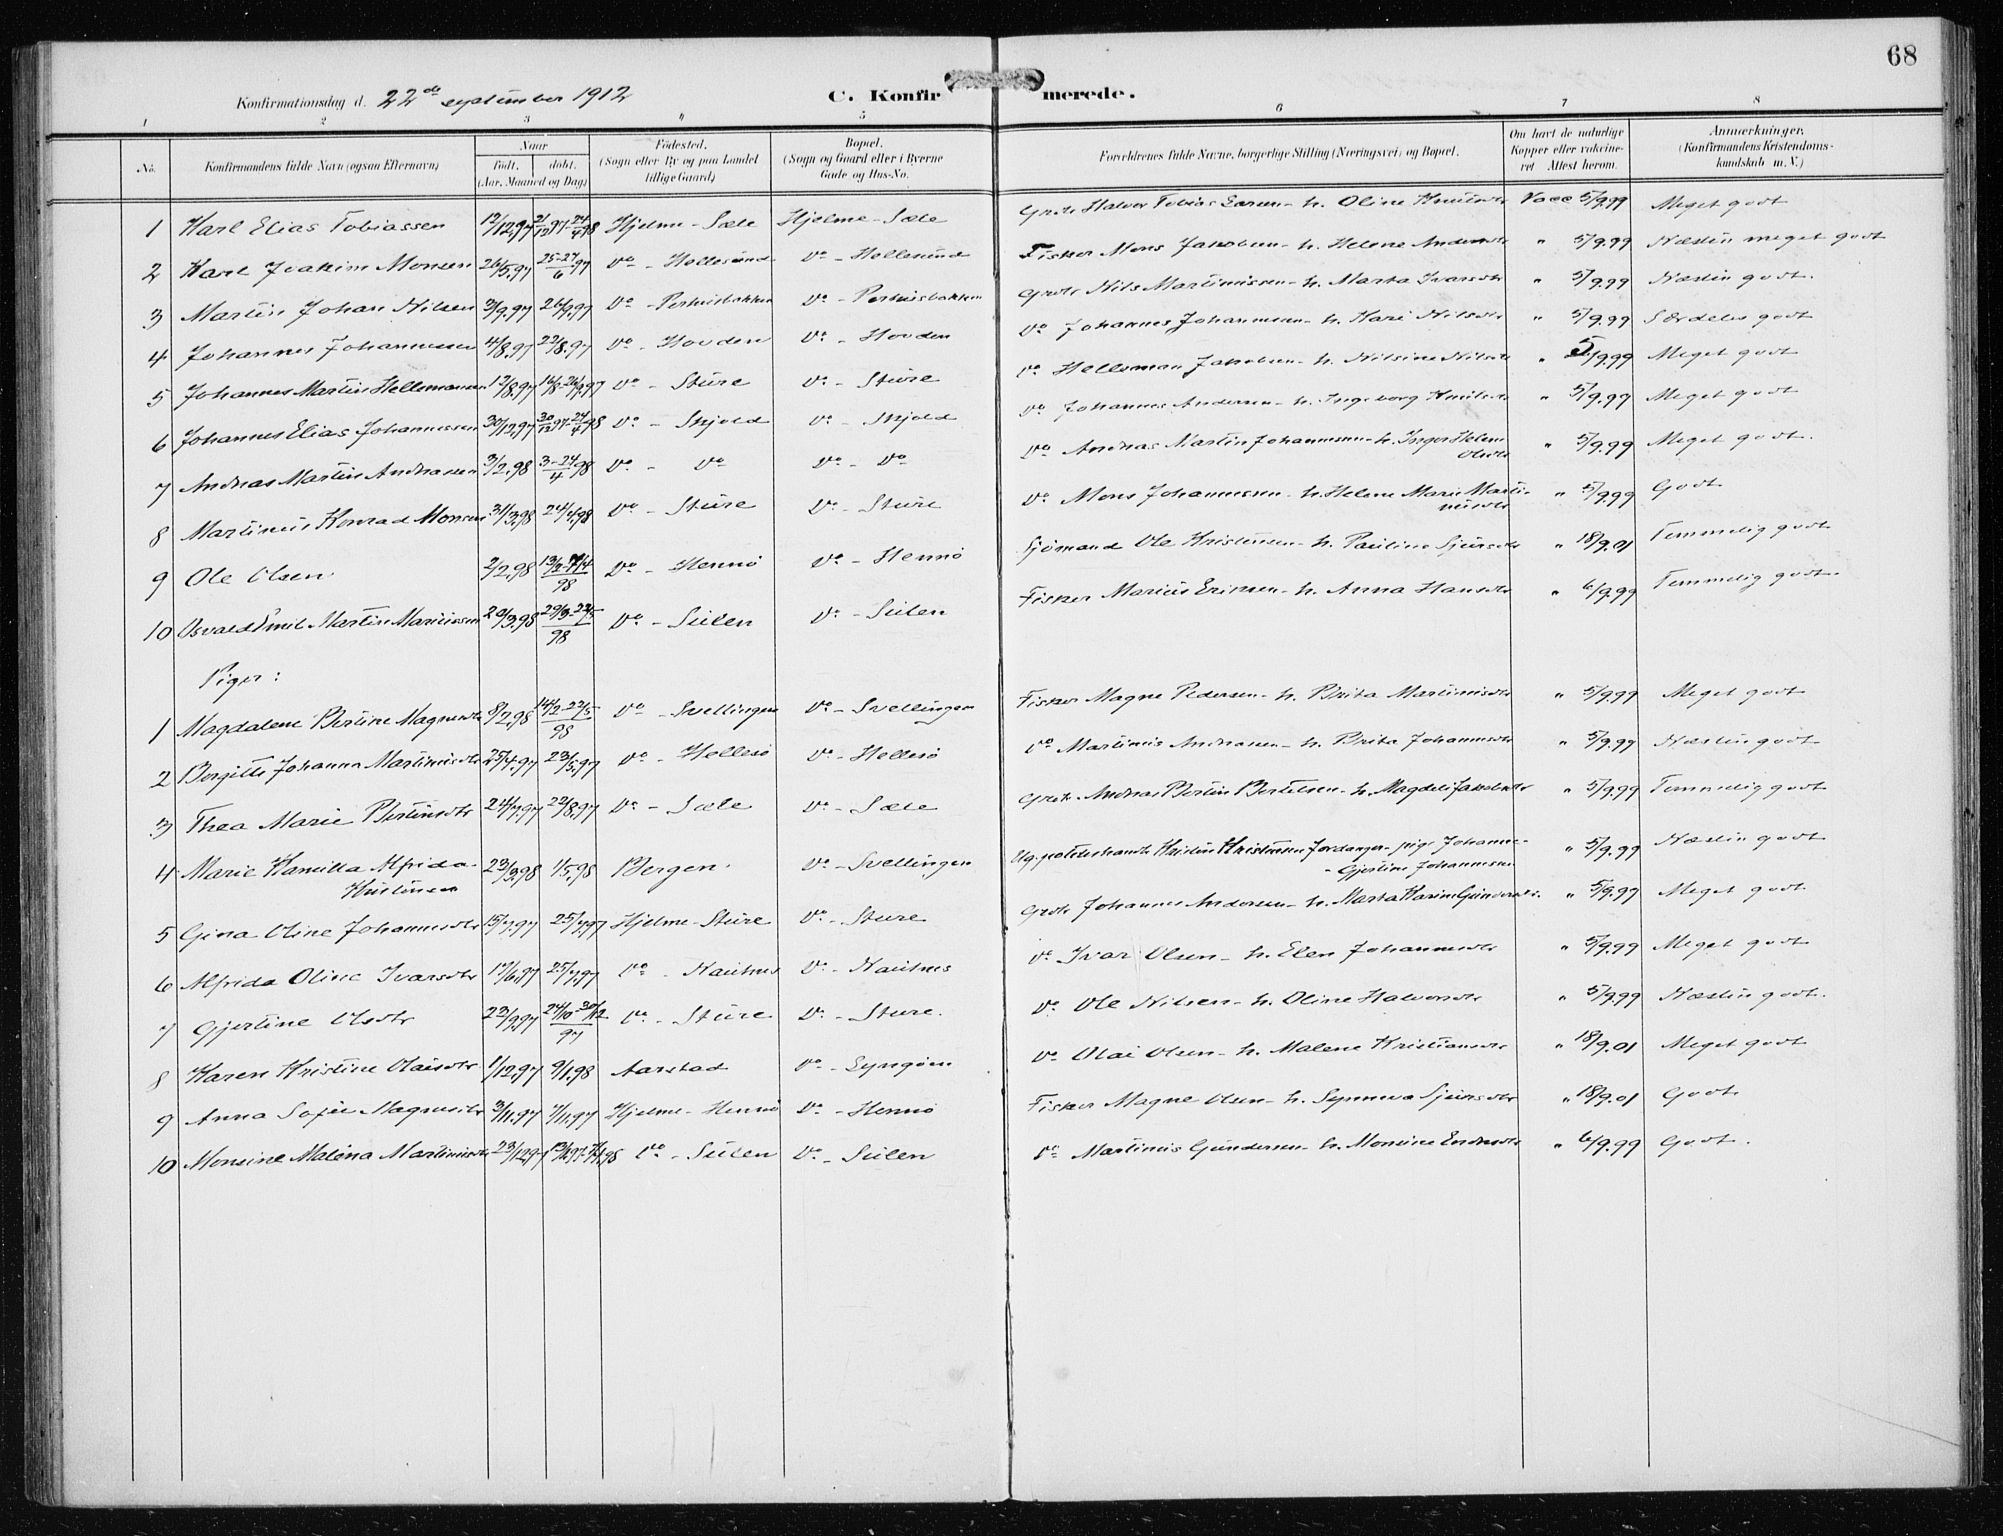 68
Konfirmationsdag d. 22de september 1912 C. Konfirmerede.
1 2 3 4 5 6 7 8
No. Konfirmandens fulde Navn (ogsaa Efternavn) Naar Fødested. (Sogn eller By og paa Landet tillige Gaard) Bopæl. (Sogn og Gaard eller i Byerne Gade og Hus-No. Forældrenes fulde Navne, borgerlige Stilling (Næringsvei) og Bopæl. Om havt de naturlige Kopper eller vaccineret Attest herom. Anmærkninger, (Konfirmandens Kristendomskundskab m. V.)
Født. døbt. (Aar, Maaned og Dag)
1 Karl Elias Tobiassen 12/12.97 21/12 97-24/4 98 Hjelme - Sæle Hjelme - Sæle Halvor Tobias - h. Oline Knutsdtr Vacc 5/9.99 Meget godt
2 Karl Joakim Monsen 26/5.97 25-27/6 97 Do - Hellesund Do - Hellesund Fisker Mons Jakobsen - h. Helene Andersdtr " 5/9.99 Næsten meget godt
3 Martin Johan Nilsen 3/9.97 26/9.97 Do - Do - Nils Martinussen - h. Marta Ivarsdtr " 5/9.99 Næsten godt.
4 Johannes Johannessen 4/8.97 22/8.97 Do - Hovden Do - Hovden Do Johannes Johannessen - h. Kari Nilsdtr " 5/9.99 Særdeles godt
5 Johannes Martin Hellemansen 12/8.97 Do - Sture Do - Sture Do Helleman Jakobsen - h. Nilsine Nilsdtr " 5/9.99 Meget godt
6 Johannes Elias Johannessen 30/12.97 30/12 97-24/4 98 Do - Skjold Do - Skjold Do Johannes Andersen - h. Ingeborg Knutsdtr " 5/9.99 Meget godt
7 Andreas Martin Andreassen 3/2.98 3-24/4 98 Do - Do Do - Do Do Andreas Martin Johannessen - h. Inger Helene Olsdtr " 5/9.99 Meget godt.
8 Martinus Konrad Monsen 31/3.98 24/4.98 Do - Sture Do - Sture Do Mons Johannessen - h. Helene Marie Martinusdtr " 5/9.99 Godt
9 Ole Olsen 2/2.98 Do - Hennø Do - Hennø Sjömand Ole Kristensen - h. Pauline Sjursdtr " 18/9.01 Temmelig godt
10 Osvald Emil Martin Mariussen Do - Seilen Do - Seilen Fisker Marius Eriksen - h. Anna Hansdtr " 6/9.99 Temmelig godt.
Piger:
1 Magdalene Bertine Magnesdtr 8/2.98 Do - Svellingen Do - Svellingen Fisker Magne Pedersen - h. Brita Martinusdtr " 5/9.99 Meget godt
2 Bergitte Johanna Martinusdtr 25/4.97 23/5.97 Do - Hellesö Do - Hellesö Do Martinus Andreassen - h. Brita Johannesdtr " 5/9.99 Næsten godt
3 Thea Marie Bertinsdtr 24/7.97 22/8.97 Do - Sæle Do - Sæle Andreas Bertin Bertelsen - h. Magdeli Jakobsdtr " 5/9.99 Temmelig godt
4 Marie Kamilla Alfrida Kristensen 23/3.98 1/5.98 Bergen. Do - Svellingen Kristen Kristensen - pige Johanne Gjertine Johannessen " 5/9.99 Næsten godt
5 Gina Oline Johannesdtr 15/7.97 25/7.97 Hjelme - Sture Do - Sture Johannes Andersen - h. Marta Karine Gundersdtr. " 5/9.99 Meget godt.
6 Alfrida Oline Ivarsdtr 17/6.97 25/7.97 Do - Nautnes Do - Nautnes Do Ivar Olsen - h. Elen Johannesdtr " 5/9.99 Meget godt
7 Gjertine Olsdtr 23/9.97 24/10-30/12 97 Do - Sture Do - Sture. Do Ole Nilsen - h. Oline Halvorsdtr " 5/9.99 Næsten godt.
8 Karen Kristine Olaisdtr 1/12.97 9/1.98 Aarstad Do - Lyngöen Do Olai Olsen - h. Malene Kristiansdtr " 18/9.01 Meget godt
9 Anna Sofie Magnesdtr 3/11.97 7/11.97 Hjelme - Hennø Do - Hennø Fisker Magne Olsen - h. Synneva Sjursdtr " 18/9.01 Godt.
10 Monsine Malena Martinusdtr 23/12.97 Do - Seilen Do - Seilen Do Martinus Gundersen - h. Monsine Endresdtr " 6/9.99 Godt.